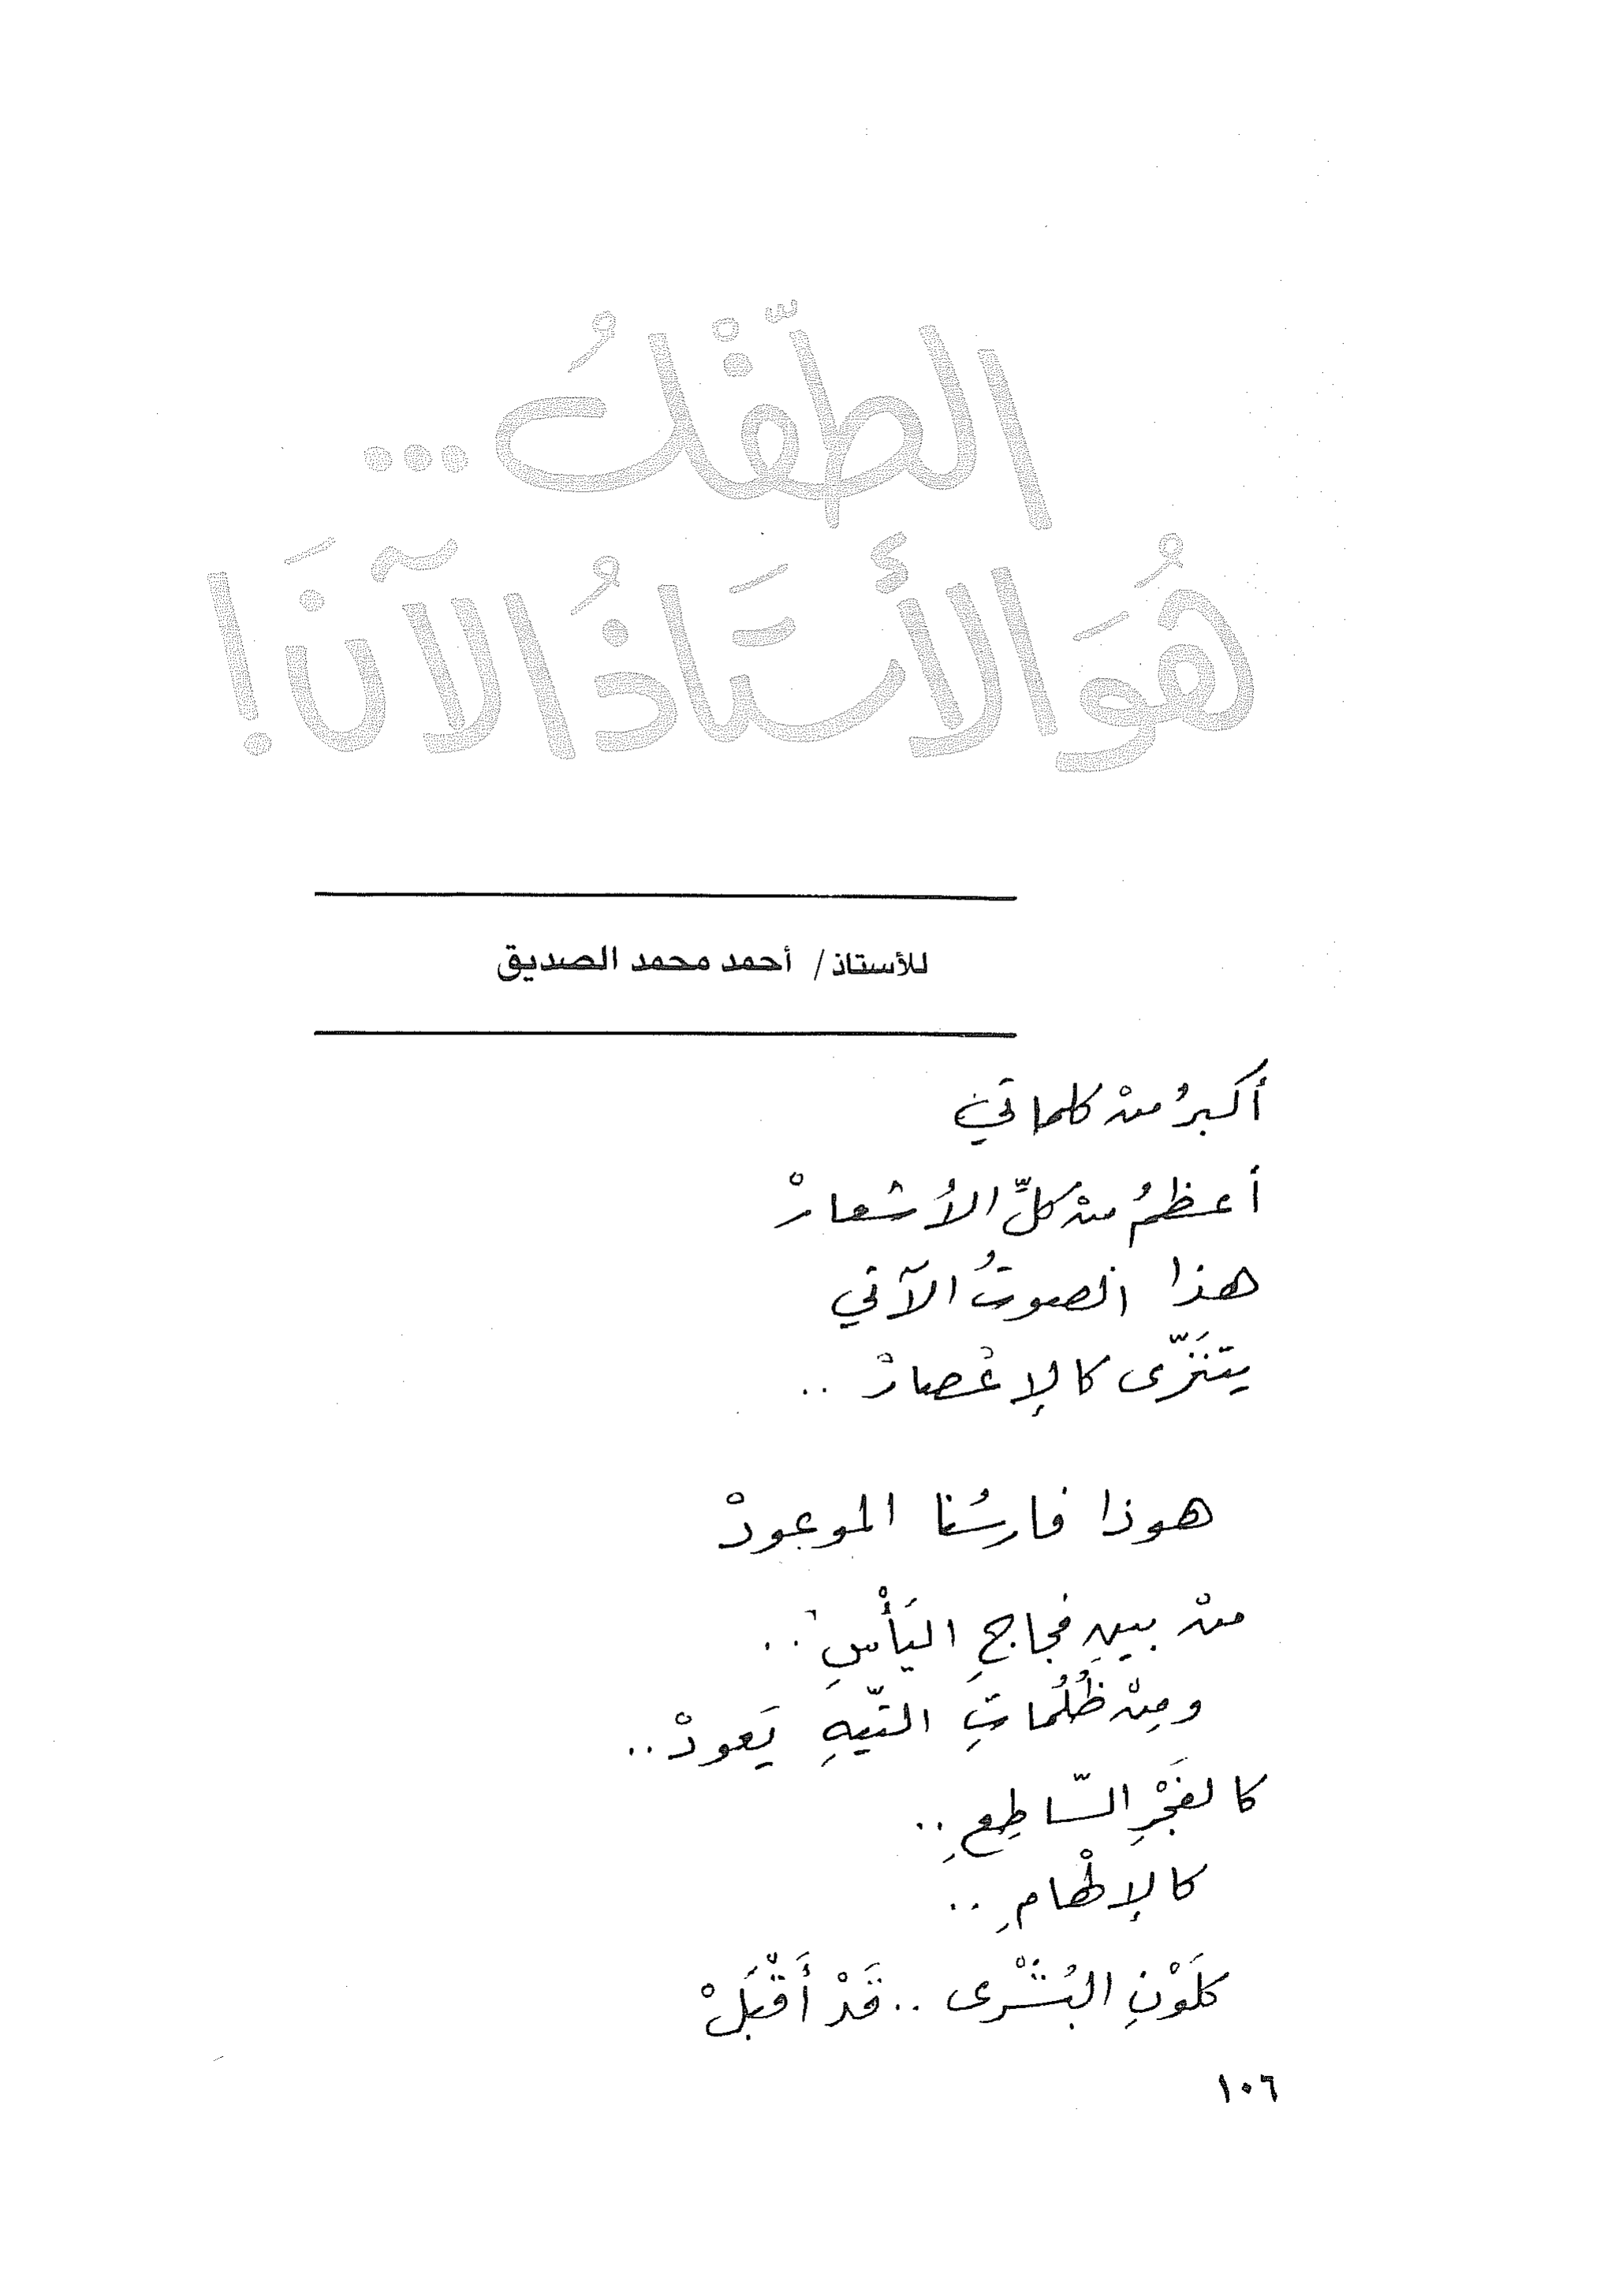 الطِّفْلُ...
هُوَ الأُستَاذُ الآنَ!
للأستاذ/ أحمد محمد الصديق
أكبرُ منْ كلماتي
أعظمُ منْ كلِّ الأشعارْ
هذا الصوتُ الآتي
يتنَزّى كالإعْصارْ ..
هوذا فارسُنا الموعودْ
منْ بينِ فجاجِ اليَأْسِ ..
ومِنْ ظُلُماتِ التّيهِ يَعودْ ..
كالفَجْرِ السّاطِعِ ..
كالإلْهامِ ..
كلَوْنِ البُشْرى .. قَدْ أَقْبَلْ
١٠٦